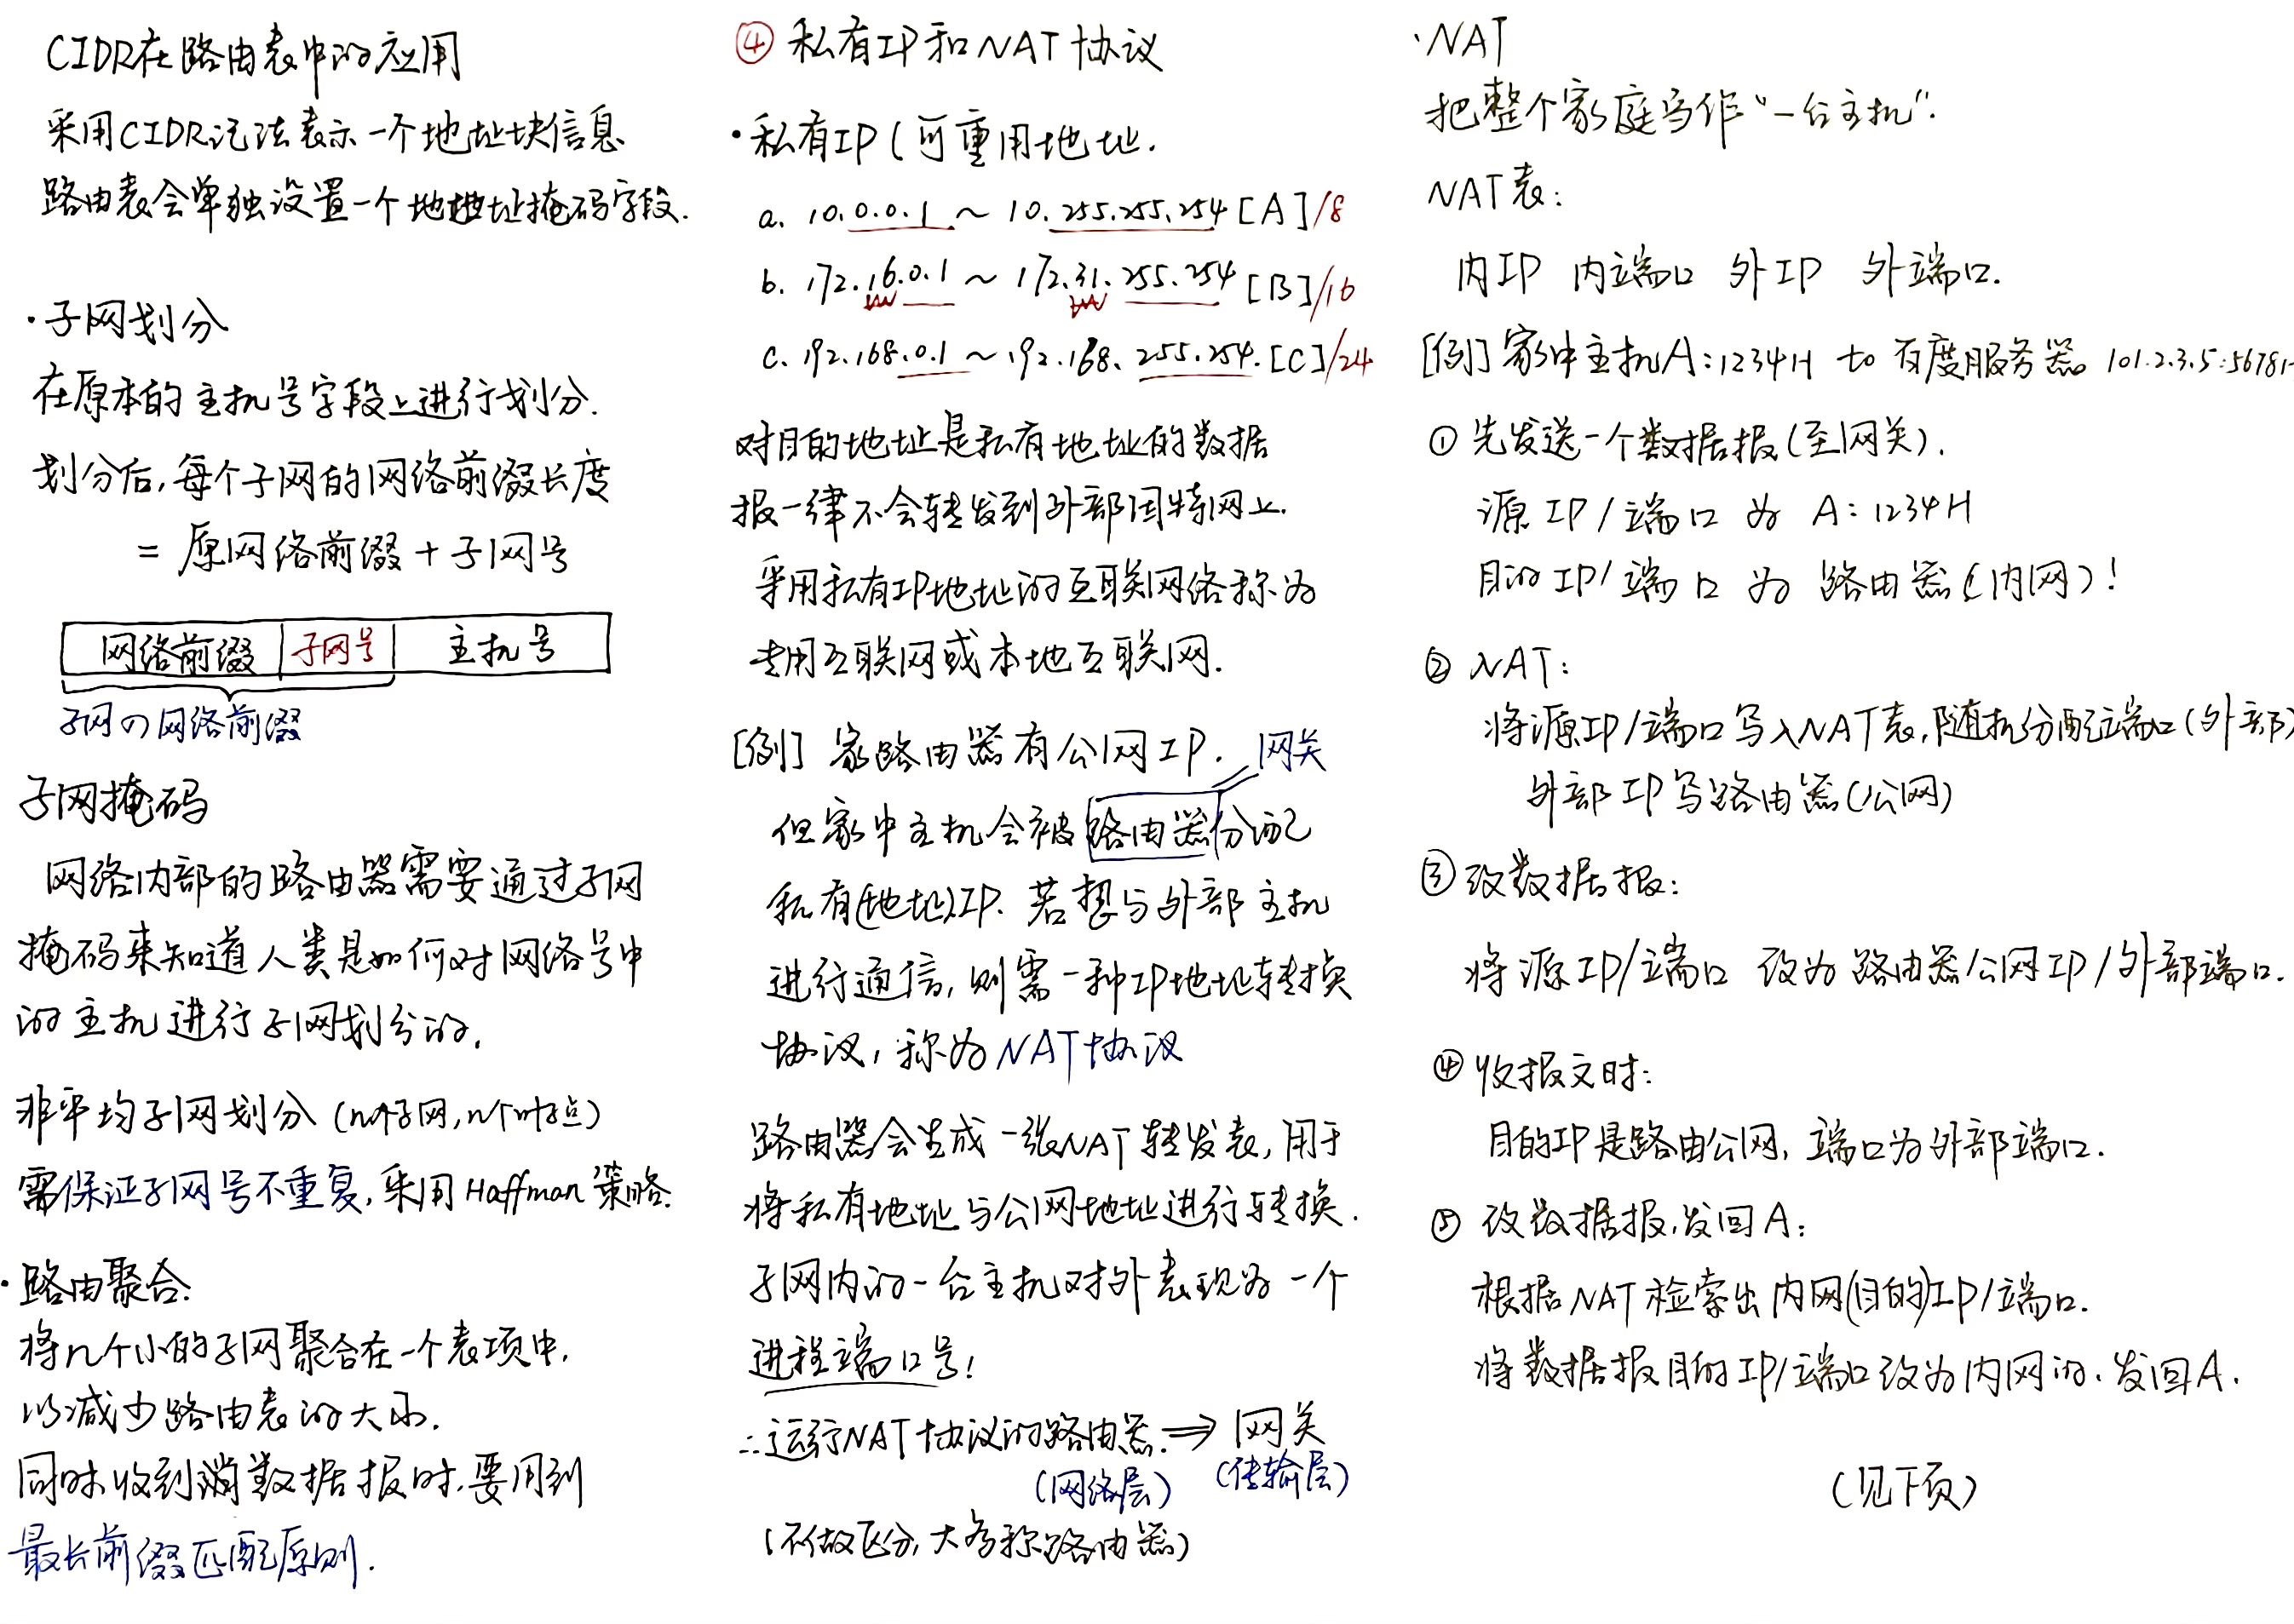 CIDR在路由表中的应用
采用CIDR记法表示一个地址块信息
路由表会单独设置一个地址掩码字段.
·子网划分
在原本的主机号字段上进行划分.
划分后,每个子网的网络前缀长度
= 原网络前缀+子网号
网络前缀 子网号 主机号
子网の网络前缀
子网掩码
网络内部的路由器需要通过子网
掩码来知道人类是如何对网络号中
的主机进行子网划分的.
非平均子网划分 (n个子网,n个叶子点)
需保证子网号不重复,采用Haffman策略.
·路由聚合:
将几个小的子网聚合在一个表项中,
以减少路由表的大小.
同时收到数据报时,要用到
最长前缀匹配原则.
④ 私有IP和NAT协议
·私有IP(可重用地址.
a. 10.0.0.1 ~ 10.255.255.254 [A]/8
b. 172.16.0.1 ~ 172.31.255.254 [B]/16
c. 192.168.0.1 ~ 192.168.255.254. [C]/24
对目的地址是私有地址的数据
报一律不会转发到外部因特网上.
采用私有IP地址的互联网络称为
专用互联网或本地互联网.
[例] 家路由器有公网IP. 网关
但家中主机会被路由器分配
私有(地址)IP. 若想与外部主机
进行通信,则需一种IP地址转换
协议,称为NAT协议
路由器会生成一张NAT转发表,用于
将私有地址与公网地址进行转换.
子网内的一台主机对外表现为一个
进程端口号!
∴运行NAT协议的路由器. ⇒ 网关
(网络层) (传输层)
(不做区分,大多称路由器)
·NAT
把整个家庭当作“一台主机”.
NAT表:
内IP 内端口 外IP 外端口.
[例] 家中主机A:1234H to 百度服务器 101.2.3.5:5678H
① 先发送一个数据报(至网关).
源IP/端口 为 A:1234H
目的IP/端口 为 路由器(内网)!
② NAT:
将源IP/端口写入NAT表,随机分配端口(外部)
外部IP写路由器(公网)
③ 改数据报:
将源IP/端口 改为 路由器公网IP/外部端口.
④ 收报文时:
目的IP是路由公网, 端口为外部端口.
⑤ 改数据报,发回A:
根据NAT检索出内网(目的)IP/端口.
将数据报目的IP/端口改为内网的.发回A.
(见下页)